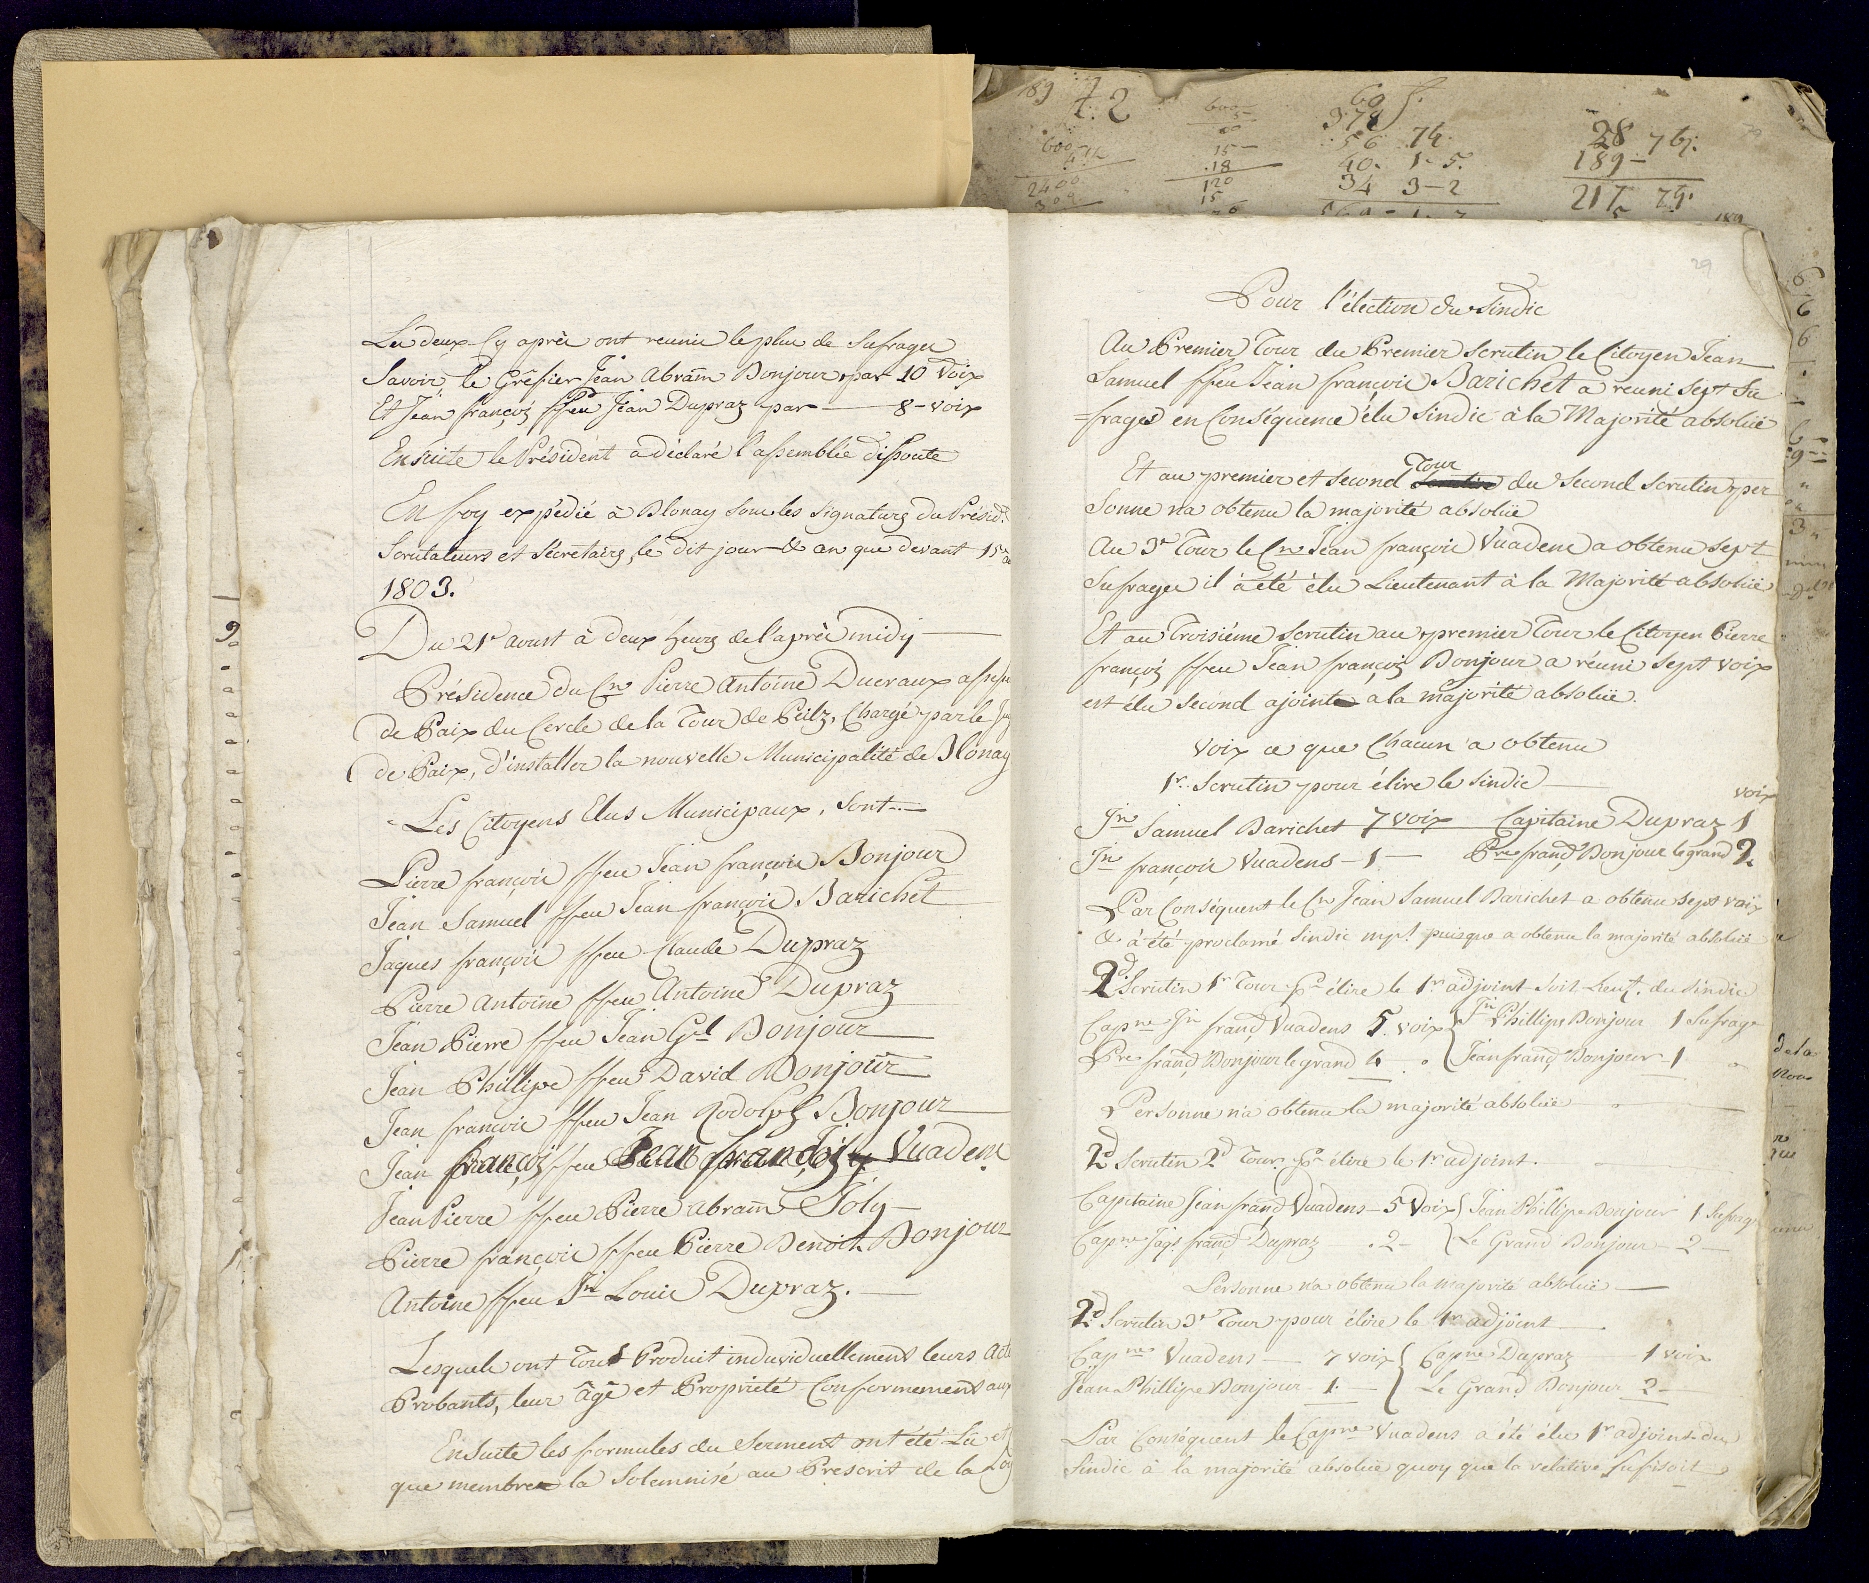 Les deux Cy après ont reunis le plus de Sufrages
Savoir, le Grêfier Jean Abram Bonjour par 10 Voix
Et Jean françois ffeu Jean Dupraz par 8 - voix
Ensuite le Président a déclaré l'assemblée dissoute
En foy expédié à Blonay sous les signatures du Présid.t
Scrutateurs et Sécretaires, le dit jour & an que devant 15e
1803.
Du 21e aoust à deux heures de l'après midy
Présidence du Cn Pierre Antoine Ducraux assess
de Paix du Cercle de la Tour de Peilz, Chargé par le Jug
de Paix, d'installer la nouvelle Municipalité de Blonay
Les Citoyens Elus Municipaux, Sont
Pierre françois ffeu Jean françois Bonjour
Jean Samuel ffeu Jean françois Barichet
Jaques françois ffeu Claude Dupraz
Pierre Antoine ffeu Antoine Dupraz
Jean Pierre ffeu Jean Gl Bonjour
Jean Phillipe ffeu David Bonjour
Jean françois ffeu Jean Rodolph Bonjour
Jean françois ffeu Jean françois Vuadens
Jean Pierre ffeu Pierre abram Joly
Pierre françois ffeu Pierre Benoit Bonjour
Antoine ffeu Jn Louis Dupraz.
Lesquels ont Tous Produit individuellement leurs Acte
Probants, leur âge et Propriété Conformement aux
Ensuite les formules du Serment ont été Lü et
que membres la Solemnisé au Prescrit de la Loy
9
189 4.2
600
15
.18
120
15
2400
60
378
56 74.
40. 1-5.
34 3-2
28 76.
189-
217 79.
29
Pour l'élection du Sindic
Au Premier Tour du Premier scrutin le Citoyen Jean
Samuel ffeu Jean françois Barichet a reuni sept Su
=frages en Conséquence élu Sindic à la Majorité absolüe
Et au premier et second Tour du Second Scrutin per
Sonne n'a obtenu la majorité absolüe
Au 3e Tour le Cn Jean françois Vuadens a obtenu Sept
Sufrages il à été élu Lieutenant à la Majorité absolüe
Et au Troisiéme Scrutin au premier Tour le Citoyen Pierre
françois ffeu Jean françois Bonjour a réuni Sept voix
est élu Sécond ajoint a la majorité absolüe.
Voix ce que Chacun a obtenu
1r. Scrutin pour élire le Sindic
voix
Jn Samuel Barichet 7 voix Capitaine Dupraz 1
Jn françois Vuadens - 1 - Pre franç Bonjour le grand 2
Par Conséquent le Cn Jean Samuel Barichet a obtenu sept voix
& à été proclamé Sindic mpl puisque a obtenu la majorité absolüe
2d Scrutin 1r Tour pr élire le 1r adjoint soit Lieut. du Sindic
Capne Jn franç Vuadens 5. voix { Jn Phillipe Bonjour 1 Sufrage
Pre franç Bonjour le grand 4 { Jean franç Bonjour - 1
Personne n'a obtenu la majorité absolüe
2d Scrutin 2d Tour pr élire le 1r adjoint.
Capitaine Jean franç Vuadens - 5 Voix { Jean Phillipe Bonjour 1 Sufrage
Capne Jaqs franç Dupraz . 2 - { Le Grand Bonjour - 2 -
Personne n'a obtenu la majorité absolüe
2d Scrutin 3e Tour pour élire le 1r adjoint
Capne Vuadens - 7 voix { Capne Dupraz - 1 voix
Jean Phillipe Bonjour 1. - { Le Grand Bonjour 2 -
Par Conséquent le Capne Vuadens a été élu 1r adjoint du
Sindic à la majorité absolüe quoy que la relative sufisoit